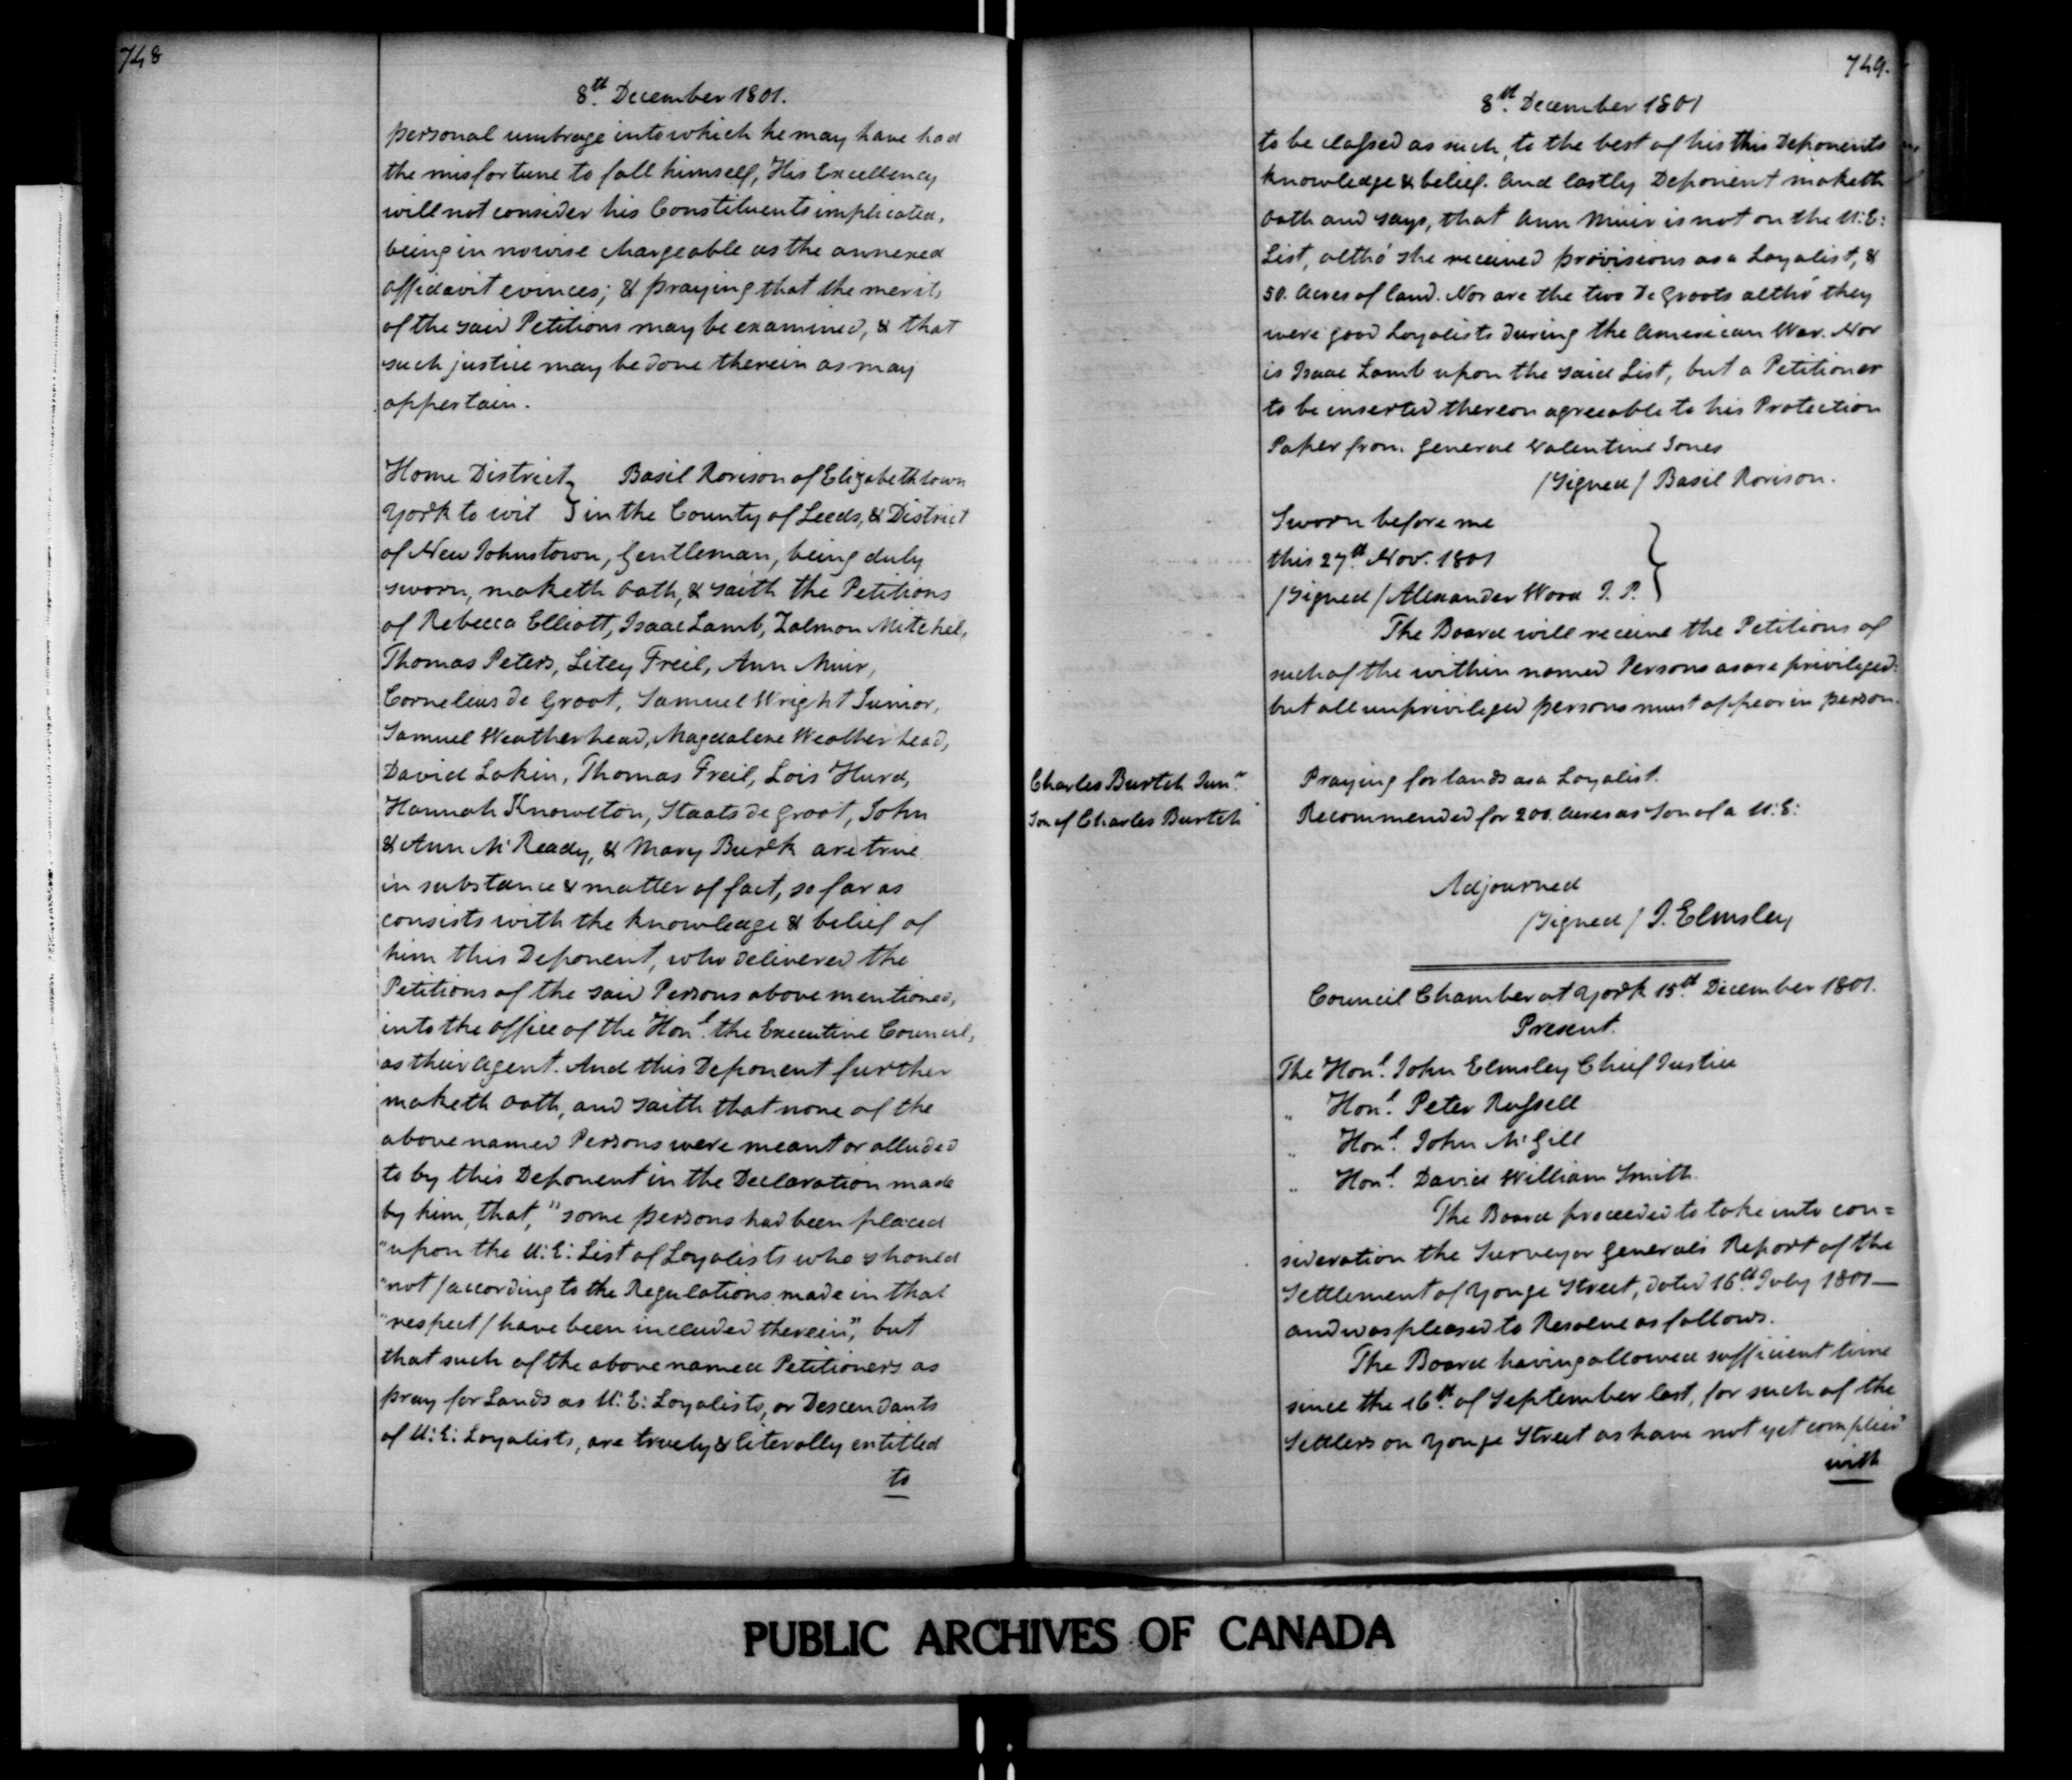 748
8th. December 1801.
personal umbrage into which he may have had
the misfortune to fall himself, His Excellency
will not consider his Constituents implicated,
being in nowise chargeable as the annexed
affidavit evinces; & praying that the merits
of the said Petitions may be examined, & that
such justice may be done therein as may
appertain.
Home District } Basil Rorison of Elizabethtown
York to wit } in the County of Leeds, & District
of New Johnstown, Gentleman, being duly
sworn, maketh Oath, & saith the Petitions
of Rebecca Elliott, Isaac Lamb, Zalmon Mitchel,
Thomas Peters, Litey Freil, Ann Muir,
Cornelius de Groot, Samuel Wright Junior,
Samuel Weatherhead, Magdalene Weatherhead,
David Lakin, Thomas Freil, Lois Hurd,
Hannah Knowlton, Staats de Groot, John
& Ann McReady, & Mary Burk are true
in substance & matter of fact, so far as
consists with the knowledge & belief of
him this Deponent, who delivered the
Petitions of the said Persons above mentioned,
into the office of the Honl. the Executive Council,
as their Agent. And this Deponent further
maketh Oath, and saith that none of the
above named Persons were meant or alluded
to by this Deponent in the Declaration made
by him, that, "some persons had been placed
"upon the U: E: List of Loyalists who should
"not / according to the Regulations made in that
"respect / have been included therein", but
that such of the above named Petitioners as
pray for Lands as U: E: Loyalists, or Descendants
of U: E: Loyalists, are truely & literally entitled
to
749.
8th. December 1801
to be classed as such, to the best of his this Deponents
knowledge & belief. And lastly Deponent maketh
Oath and says, that Ann Muir is not on the U: E:
List, altho' she received provisions as a Loyalist, &
50. Acres of land. Nor are the two De Groots altho' they
were good Loyalists during the American War. Nor
is Isaac Lamb upon the said List, but a Petitioner
to be inserted thereon agreeable to his Protection
Paper from General Valentine Jones
/Signed/ Basil Rorison.
Sworn before me
this 27th. Nov. 1801 }
/Signed/ Alexander Wood J. P.
The Board will receive the Petitions of
such of the within named Persons as are privileged:
but all unprivileged persons must appear in person.
Charles Burtch Junr. Praying for lands as a Loyalist.
Son of Charles Burtch Recommended for 200 Acres as Son of a U: E:
Adjourned
/Signed/ J. Elmsley
Council Chamber at York 15th. December 1801.
Present.
The Honl. John Elmsley Chief Justice
" Honl. Peter Russell
" Honl. John McGill
" Honl. David William Smith.
The Board proceeded to take into con=
sideration the Surveyor General's Report of the
Settlement of Yonge Street, dated 16th July 1801—
and was pleased to Resolve as follows.
The Board having allowed sufficient time
since the 16th. of September last, for such of the
Settlers on Yonge Street as have not yet complied
with
PUBLIC ARCHIVES OF CANADA